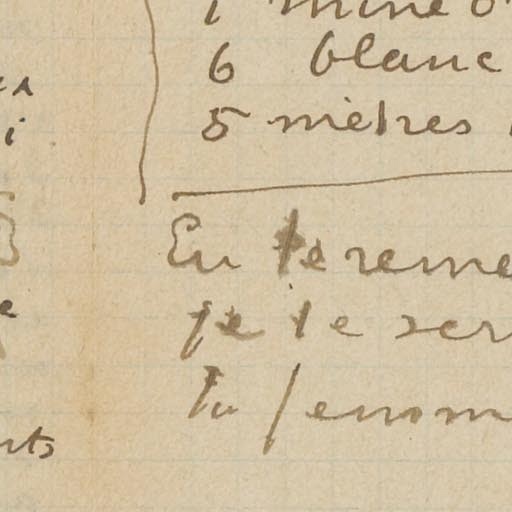 6 blanc
5 mètres
En te reme
je te ser
tu
rts